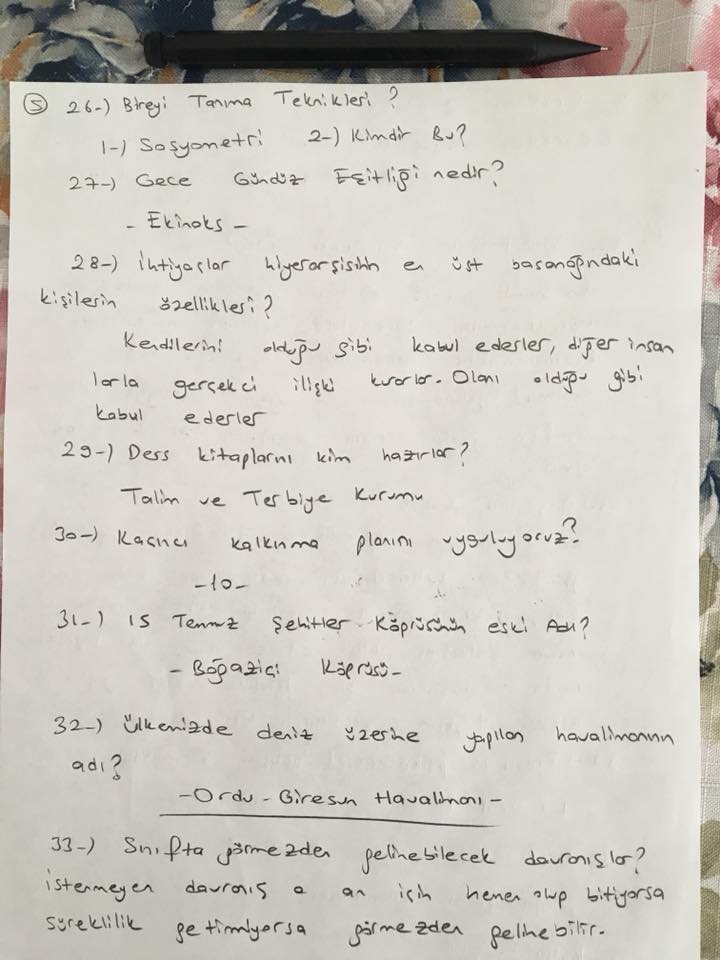 5 26-) Bireyi Tanıma Teknikleri?
1-) Sosyometri 2-) Kimdir Bu?
27-) Gece Gündüz Eşitliği nedir?
- Ekinoks -
28-) İhtiyaçlar hiyerarşisinin en üst basamağındaki
kişilerin özellikleri?
Kendilerini olduğu gibi kabul ederler, diğer insan
larla gerçekci ilişki kurarlar. Olanı olduğu gibi
kabul ederler
29-) Ders kitaplarını kim hazırlar?
Talim ve Terbiye Kurumu
30-) Kaçıncı kalkınma planını uyguluyoruz?
-10-
31-) 15 Temmuz Şehitler Köprüsünün eski Adı?
- Boğaziçi Köprüsü -
32-) Ülkemizde deniz üzerine yapılan havalimanının
adı?
- Ordu - Giresun Havalimanı -
33-) Sınıfta görmezden gelinebilecek davranışlar?
istenmeyen davranış o an için hemen olup bitiyorsa
süreklilik getirmiyorsa görmezden gelinebilir.